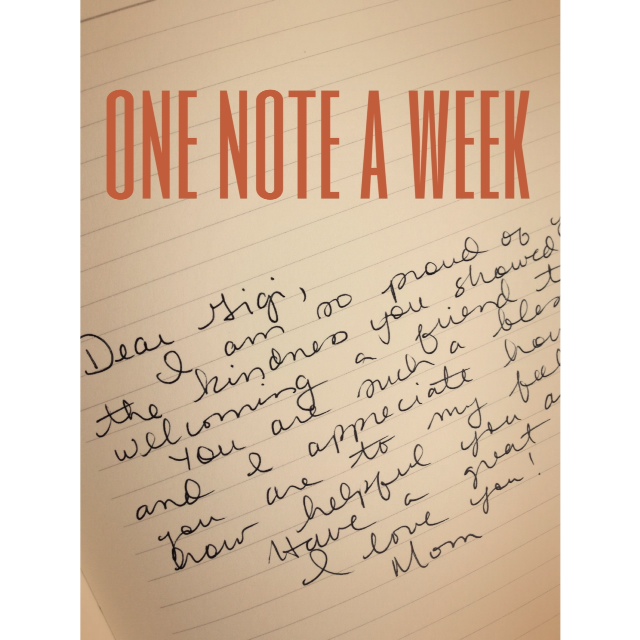 ONE NOTE A WEEK
Dear Gigi,
I am so proud of
the kindness you showed
welcoming a friend
You are such a
and I appreciate
you are to my
how helpful you
Have a great
I love you!
Mom